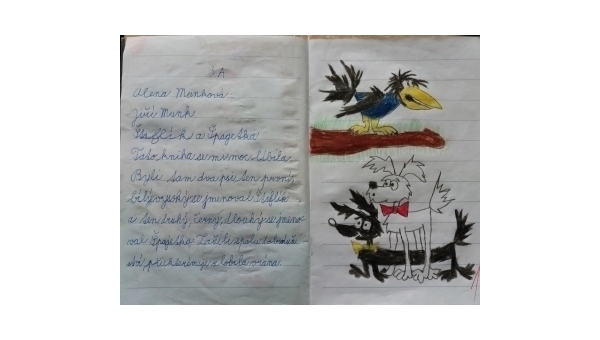 3. A
Alena Munková
Jiří Munk
Štaflík a Špagetka
Tato kniha se mi moc líbila.
Byli tam dva psi ten první
bílý vysoký se jmenoval Štaflík
a ten druhý, černý, dlouhý se jmeno
val Špagetka. Zažili spolu
a vrána.